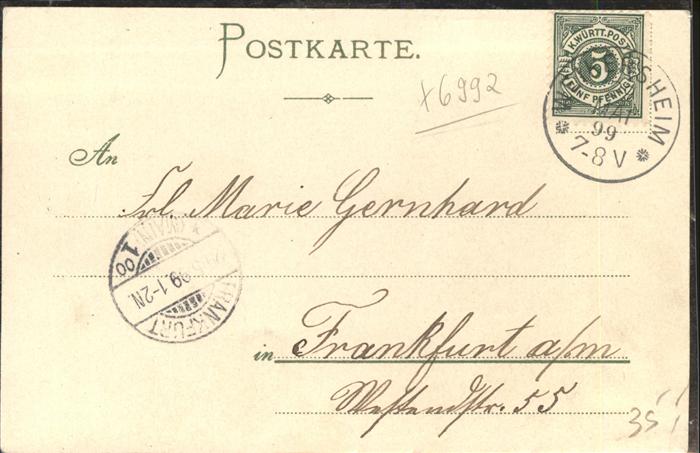 POSTKARTE.
x6992
K.WÜRTT.POST
5
FÜNF PFENNIG
MAI
99
7-8 V
An
Frl. Marie Gernhard
FRANKFURT
(MAIN) 1
00
5.99. 1-2N.
in Frankfurt a/m
Westendstr. 55
35